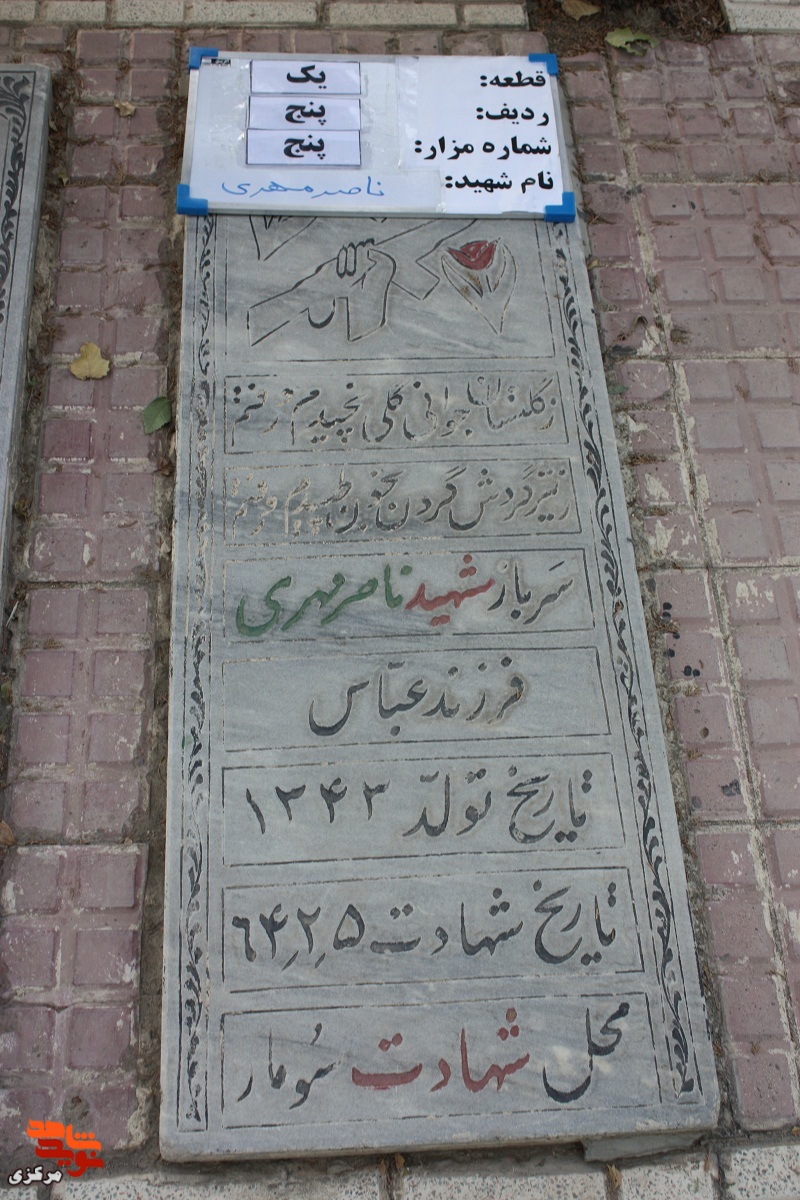 قطعه: یک
ردیف: پنج
شماره مزار: پنج
نام شهید: ناصر مهری
ز گلستان جوانی گلی نچیدم رفتم
ز تیر گردش گردن بخون طپیدم و رفتم
سرباز شهید ناصر مهری
فرزند عباس
تاریخ تولّد ۱۳۴۳
تاریخ شهادت ۶۴٫۲٫۵
محل شهادت سُومار
نوید شاهد
مرکزی